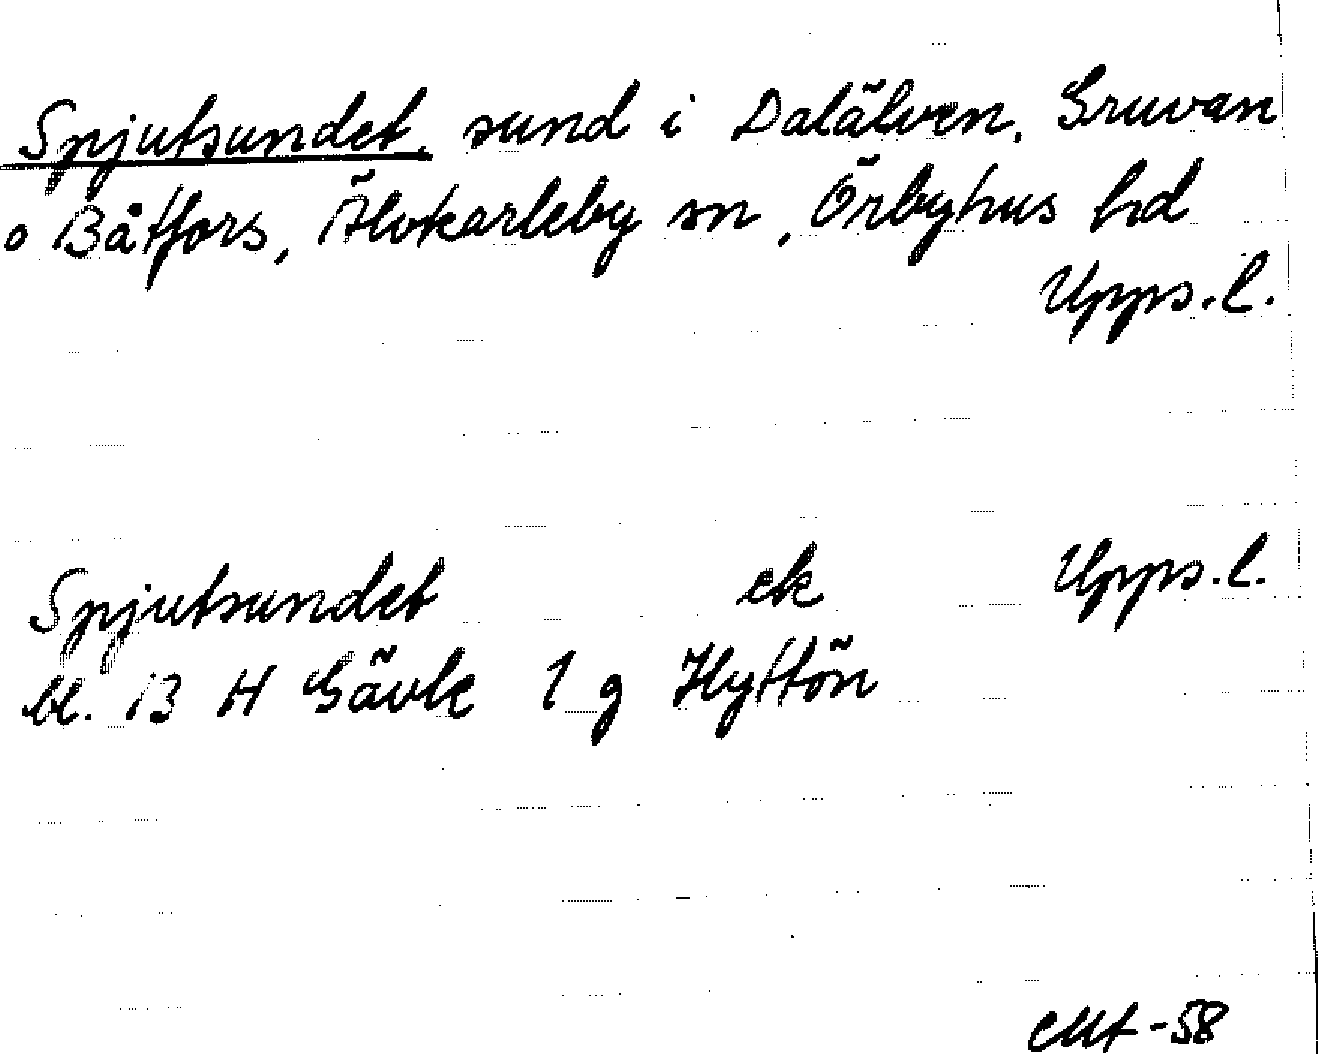 Spjutsundet, sund i Dalälven, Gruvan
o Båtfors, Älvkarleby sn, Örbyhus hd
Upps. l.
Spjutsundet ek Upps. l.
bl. 13 H Gävle 1 g Hyttön
-58